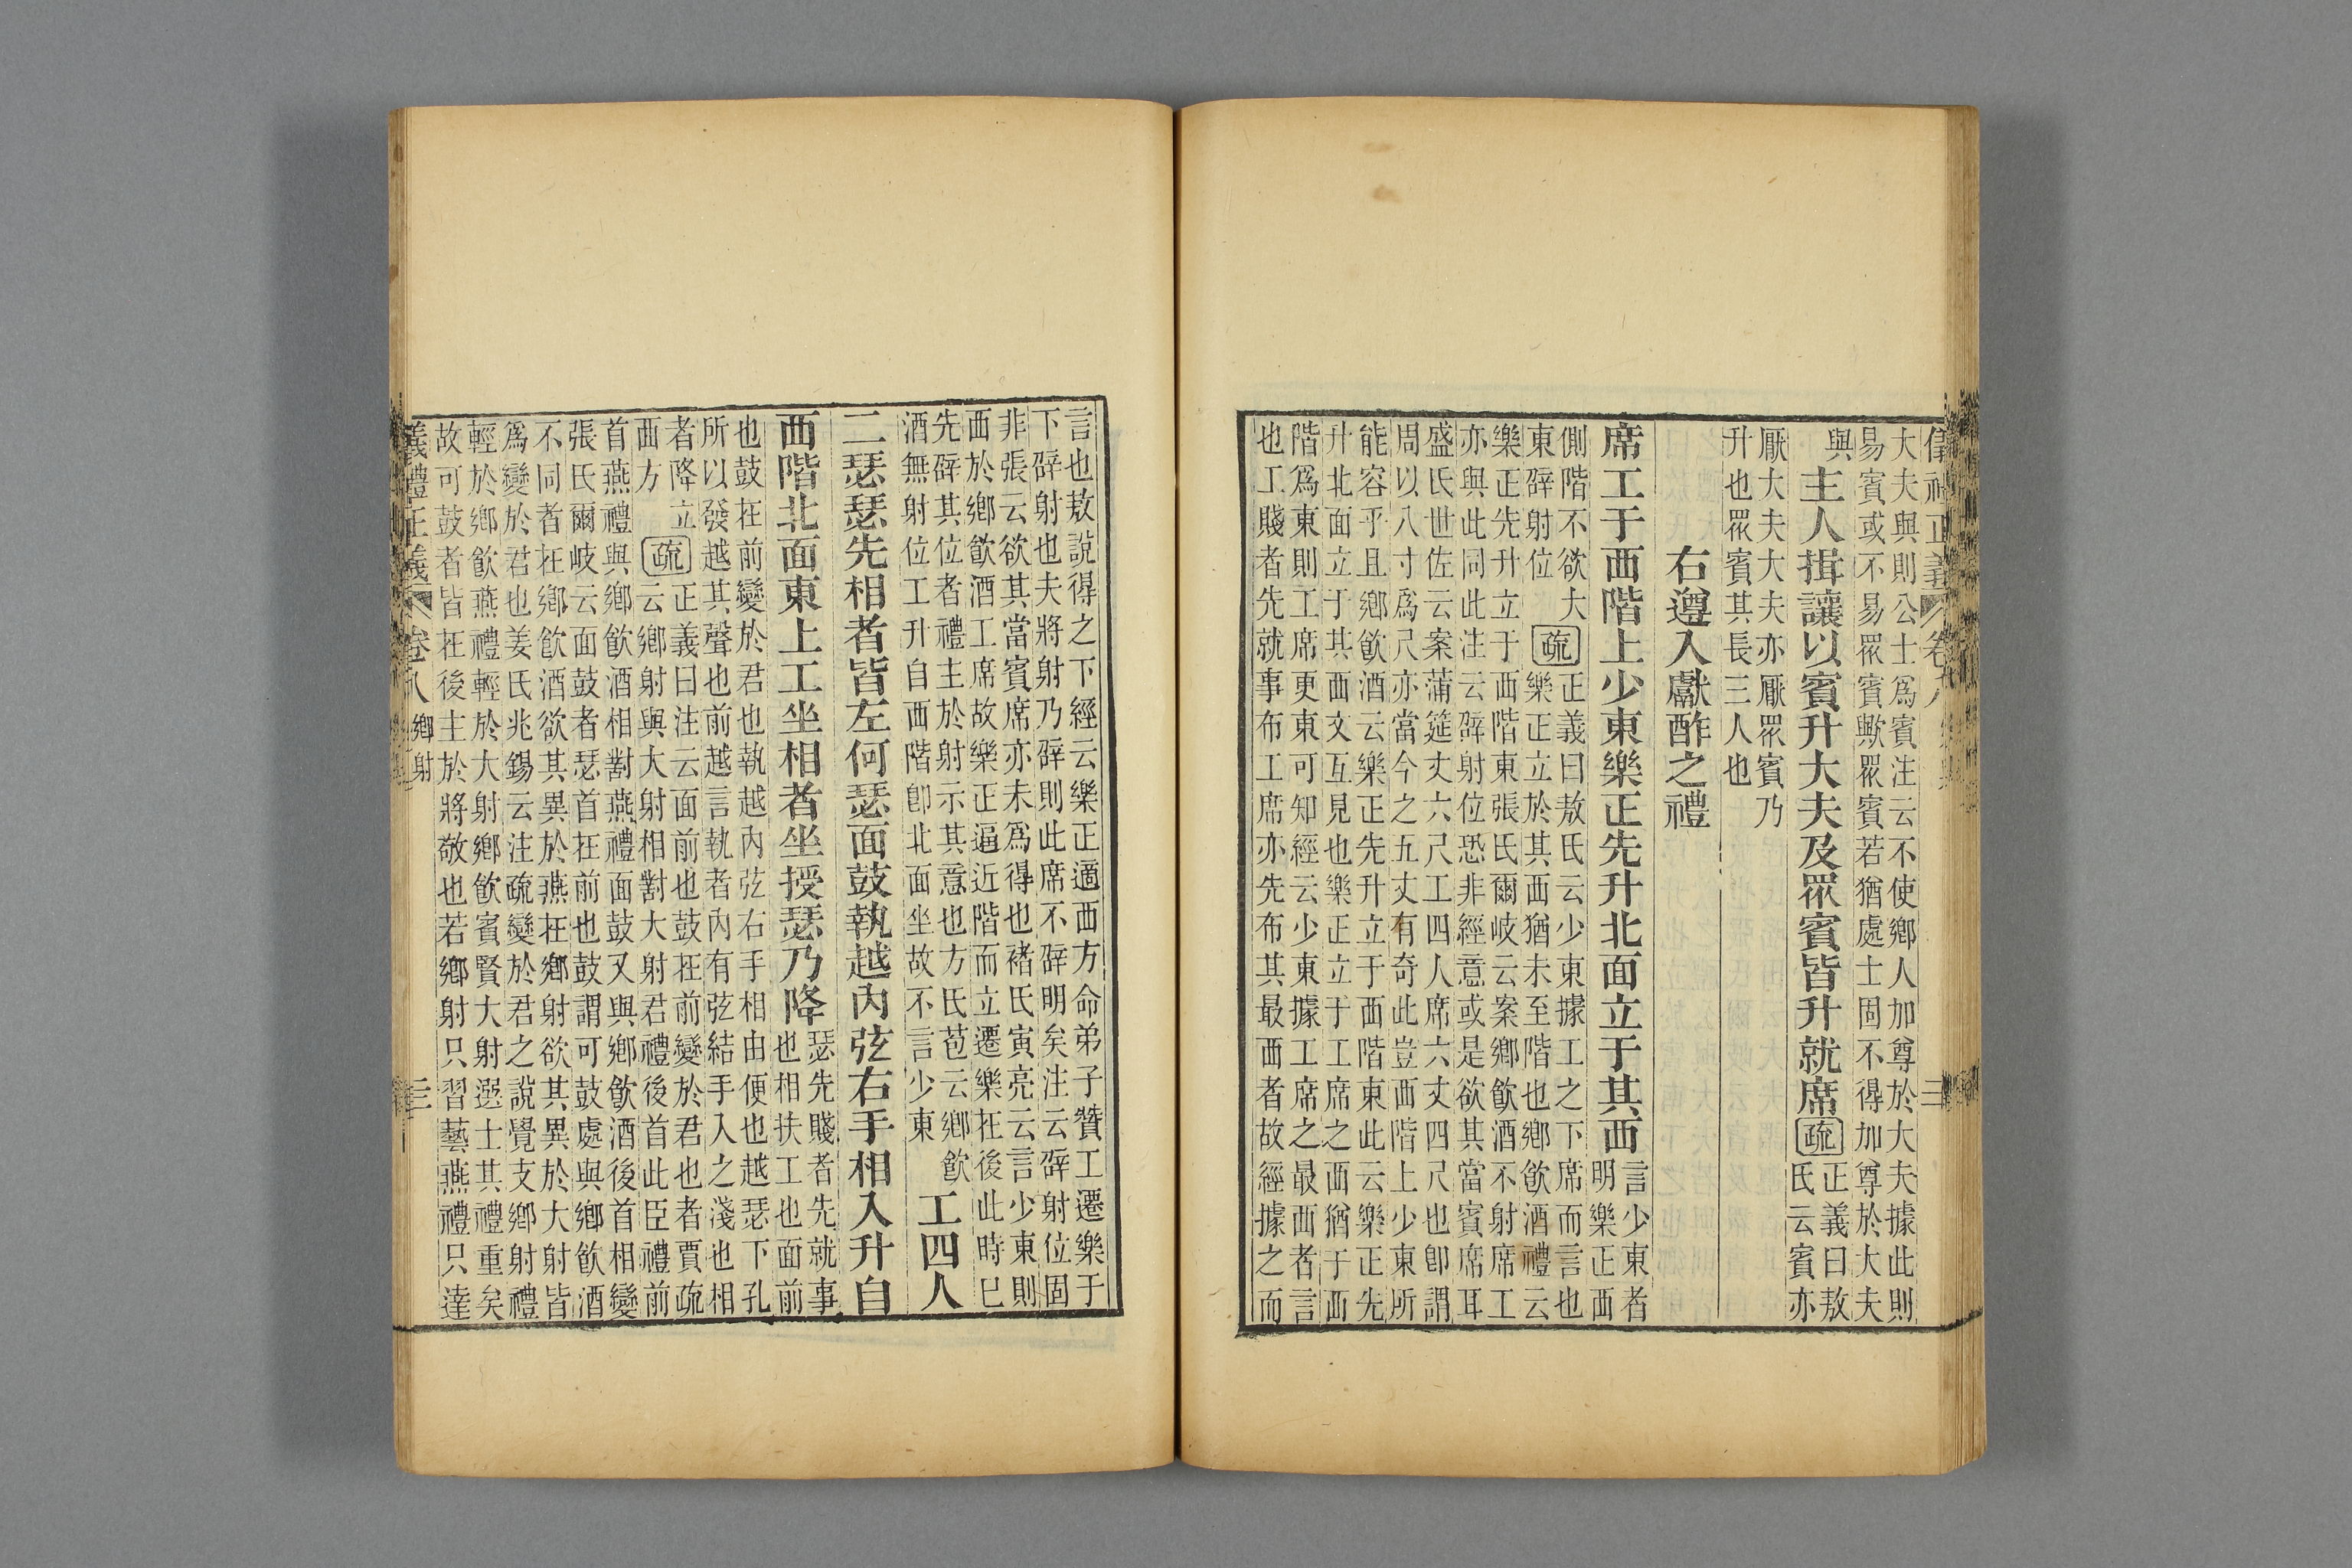 大夫與則公士爲賓注云不使鄉人加尊於大夫據此則
易賓或不易眾賓歟眾賓若猶處士固不得加尊於大夫
與
主人揖讓以賓升大夫及眾賓皆升就席
疏
正義曰敖
氏云賓亦
厭大夫大夫亦厭眾賓乃
升也眾賓其長三人也
右遵入獻酢之禮
席工于西階上少東樂正先升北面立于其西
言少東者
明樂正西
側階不欲大
東辟射位
疏
正義曰敖氏云少東據工之下席而言也
樂正立於其西猶未至階也鄉飲酒禮云
樂正先升立于西階東張氏爾岐云案鄉飲酒不射席工
亦與此同此注云辟射位恐非經意或是欲其當賓席耳
盛氏世佐云案蒲筵丈六尺工四人席六丈四尺也卽謂
周以八寸爲尺亦當今之五丈有奇此豈西階上少東所
能容乎且鄉飲酒云樂正先升立于西階東此云樂正先
升北面立于其西文互見也樂正立于工席之西猶于西
階爲東則工席更東可知經云少東據工席之最西者言
也工賤者先就事布工席亦先布其最西者故經據之而
言也敖說得之下經云樂正適西方命弟子贊工遷樂于
下辟射也夫將射乃辟則此席不辟明矣注云辟射位固
非張云欲其當賓席亦未爲得也褚氏寅亮云言少東則
西於鄉飲酒工席故樂正逼近階而立遷樂在後此時已
先辟其位者禮主於射示其意也方氏苞云鄉飲
酒無射位工升自西階卽北面坐故不言少東
工四人
二瑟瑟先相者皆左何瑟面鼓執越內弦右手相入升自
西階北面東上工坐相者坐授瑟乃降
瑟先賤者先就事
也相扶工也面前
也鼓在前變於君也執越內弦右手相由便也越瑟下孔
所以發越其聲也前越言執者內有弦結手入之淺也相
者降立
西方
疏
正義曰注云面前也鼓在前變於君也者賈疏
云鄉射與大射相對大射君禮後首此臣禮前
首燕禮與鄉飲酒相對燕禮面鼓又與鄉飲酒後首相變
張氏爾岐云面鼓者瑟首在前也鼓謂可鼓處與鄉飲酒
不同者在鄉飲酒欲其異於燕在鄉射欲其異於大射皆
爲變於君也姜氏兆錫云注疏變於君之說覺支鄉射禮
輕於鄉飲燕禮輕於大射鄉飲賓賢大射選士其禮重矣
故可鼓者皆在後主於將敬也若鄉射只習藝燕禮只達
義禮正義 卷八 鄉射
三